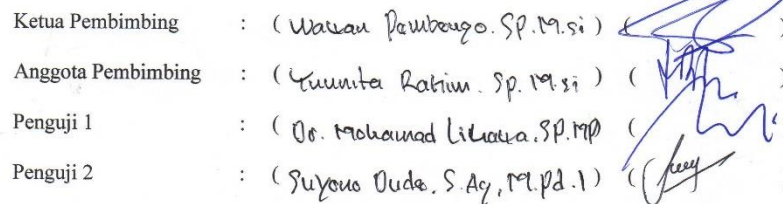 Ketua Pembimbing : (Wawan Pembengo. SP. M.si) ( )
Anggota Pembimbing : (Yunnita Rahim. SP. M.si) ( )
Penguji 1 : (Dr. Mohamad Lihawa. SP. MP (
Penguji 2 : (Suyono Dude. S.Ag, M.Pd.I) (